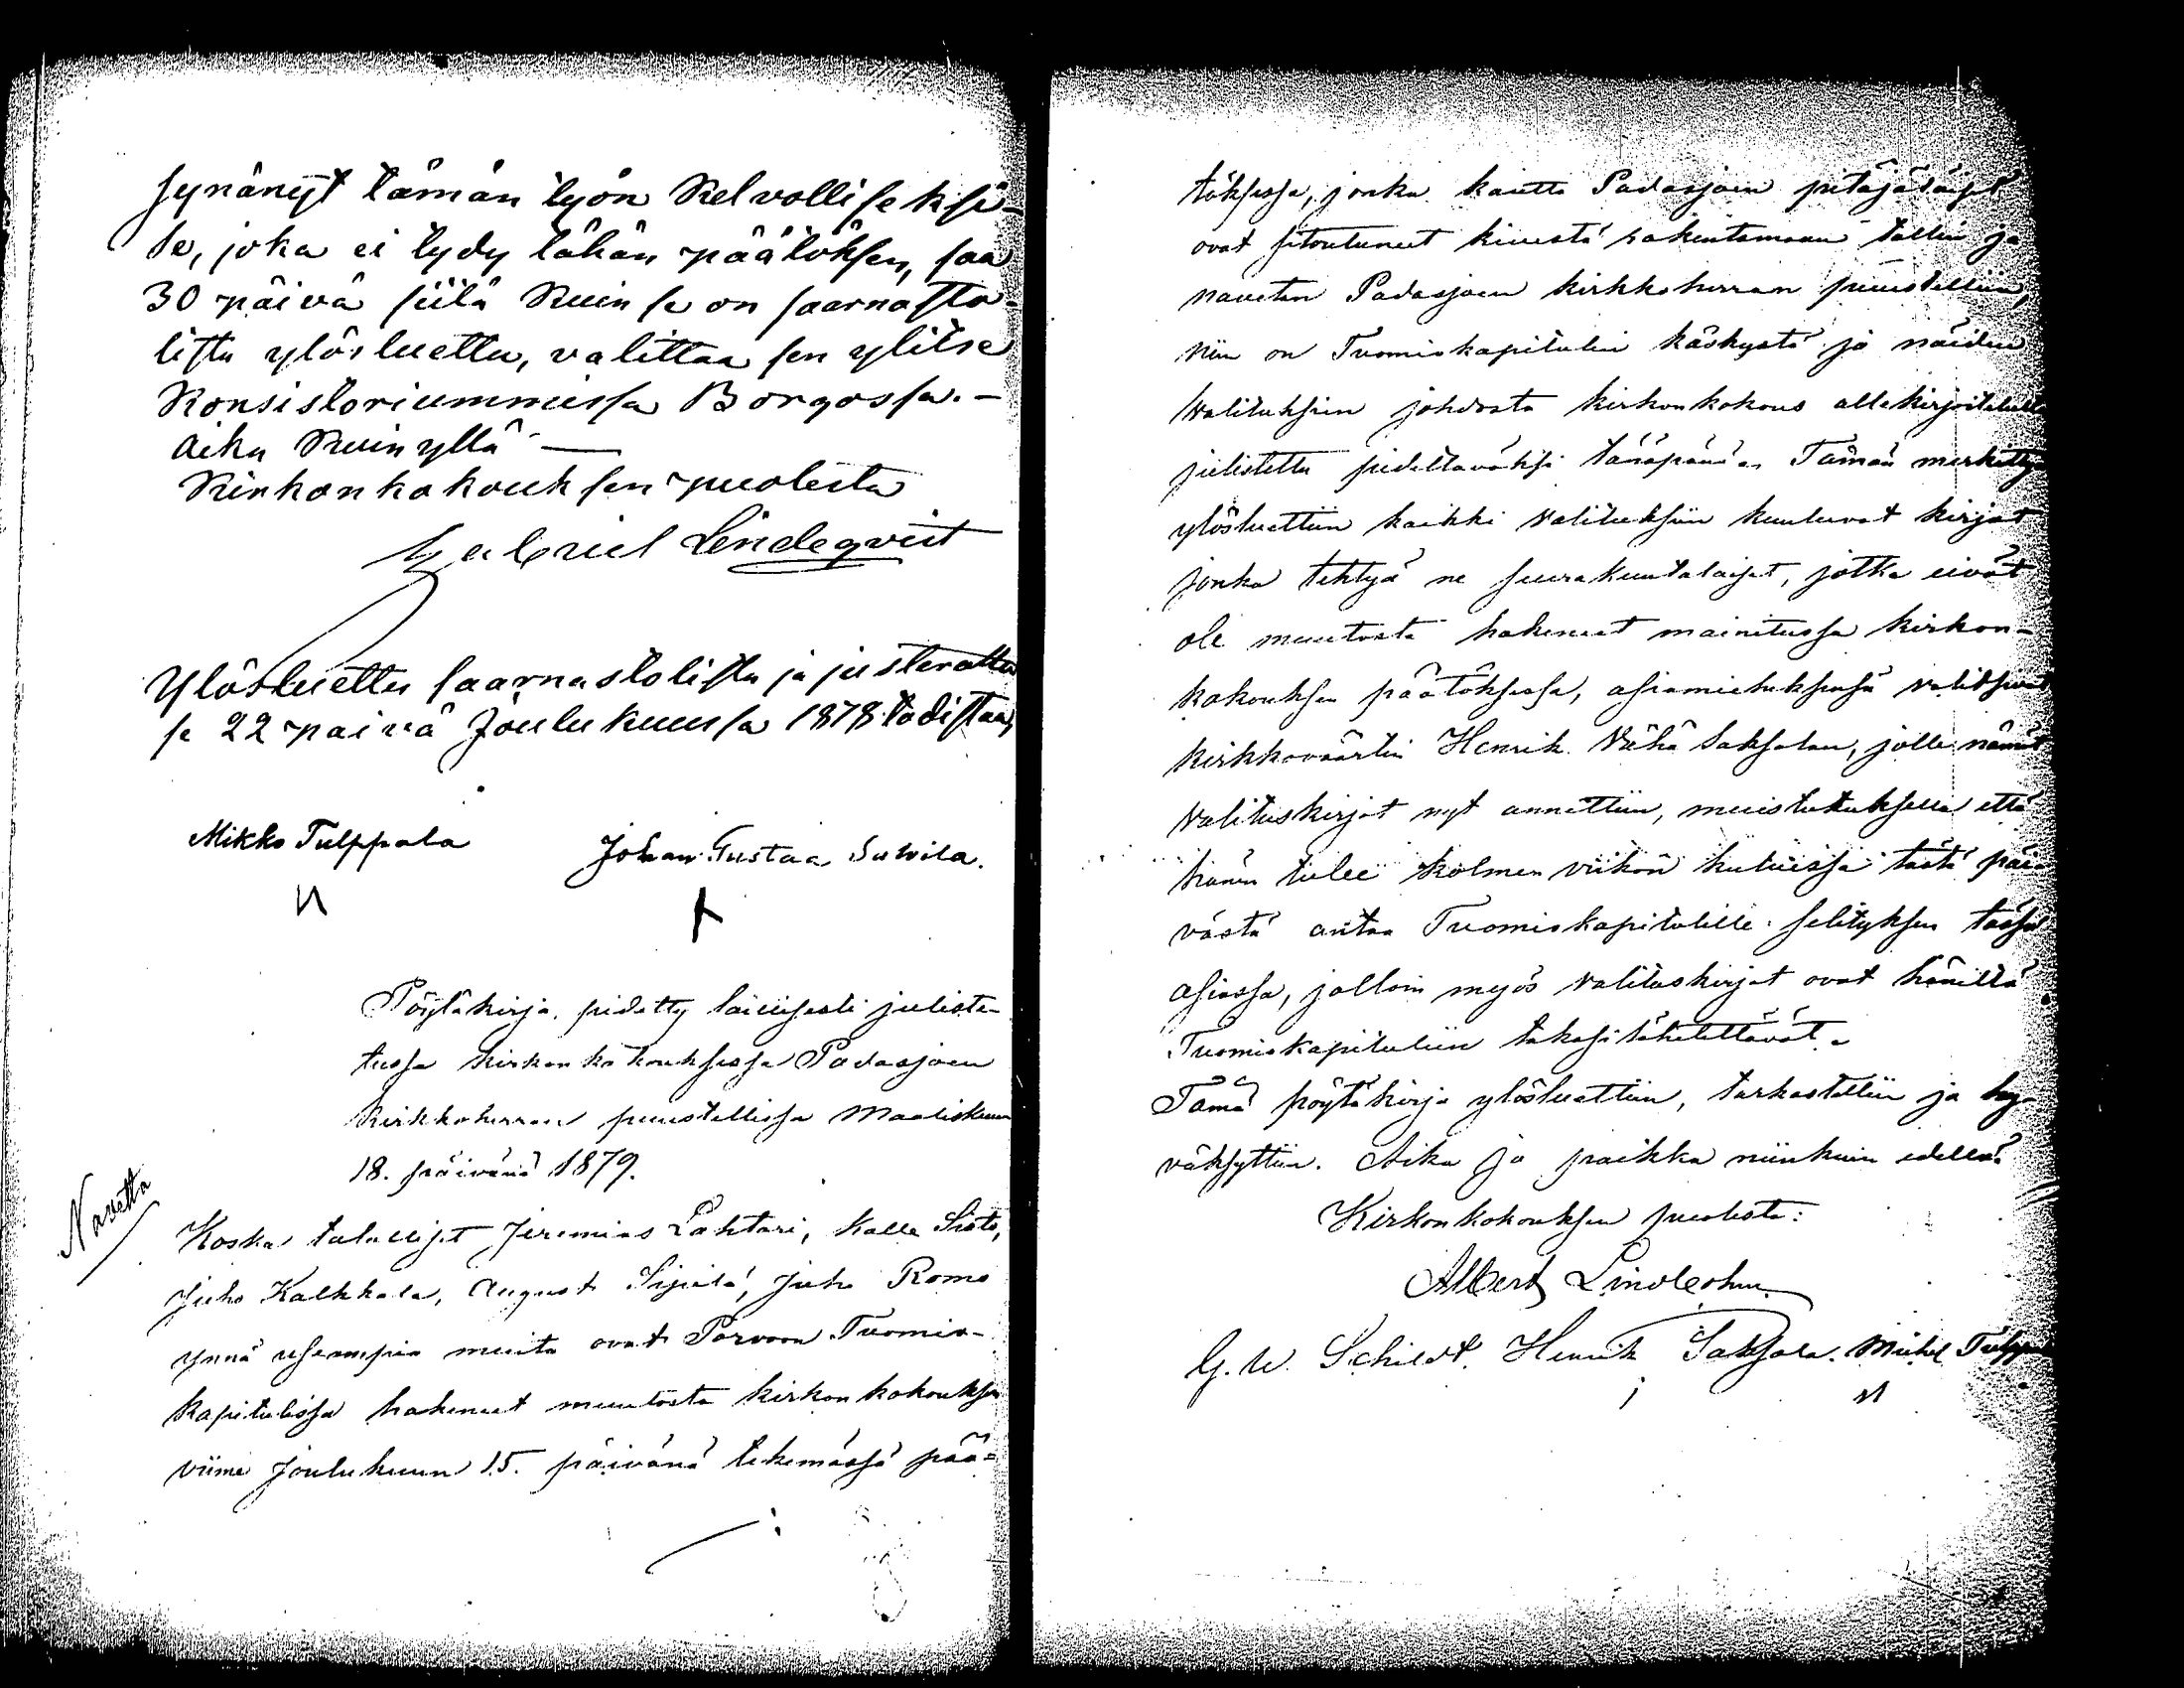 synänyt tämän työn kelvolliseksi-
se, joka ei tydy tähän päätöksen, saa
30 päivä siitä kuin se on saarnasto-
lista ylösluettu, valittaa sen ylitse
Konsistoriummissa Borgossa. -
Aika kuin yllä -
Kirkonkokouksen puolesta
Gabriel Lindeqvist
Ylösluettu saarnastolista ja justerattu
se 22 päivä Joulukuussa 1878 todistaa,
Mikko Tulppala Johan Gustaa Suvila.
Pöytäkirja, pidetty laillisesti juliste-
tussa kirkonkokouksessa Padasjoen
kirkkoherran puustellissa Maaliskuun
18. päivänä 1879.
Navetta
Koska talolliset Jeremias Lahtari, Kalle Sisto,
Juho Kalkkala, August Sipilä, Juho Romo
ynnä useampia muita ovat Porvoon Tuomio-
kapitulissa hakeneet muutosta kirkonkokouksen
viime Joulukuun 15. päivänä tekemässä pää-
töksessä, jonka kautta Padasjoen pitäjäläiset
ovat sitoutuneet kivestä rakentamaan tallin ja
navetan Padasjoen kirkkoherran puustelliin,
niin on Tuomiokapitulin käskystä ja näiden
valituksien johdosta kirkonkokous allekirjoitetulta
julistettu pidettäväksi tänäpänä. Tämän merkitty
ylösluettiin kaikki valituksiin kuuluvat kirjat
jonka tehtyä ne seurakuntalaiset, jotka eivät
ole muutosta hakeneet mainitussa kirkon-
kokouksen päätöksessä, asiamieheksensä valitsivat
kirkkoväärtin Henrik Vähä Saksalan, jolle nämät
valituskirjat nyt annettiin, muistutuksella että
hänen tulee kolmen viikon kuluissa tästä päi-
västä antaa Tuomiokapitulille selityksen tässä
asiassa, jolloin myös valituskirjat ovat häneltä
Tuomiokapituliin takasi lähetettävät.
Tämä pöytäkirja ylösluettiin, tarkastettiin ja hy-
väksyttiin. Aika ja paikka niinkuin edellä.
Kirkonkokouksen puolesta:
Albert Lindholm
G. W. Schildt. Henrik Saksala. Mickel Tulppala